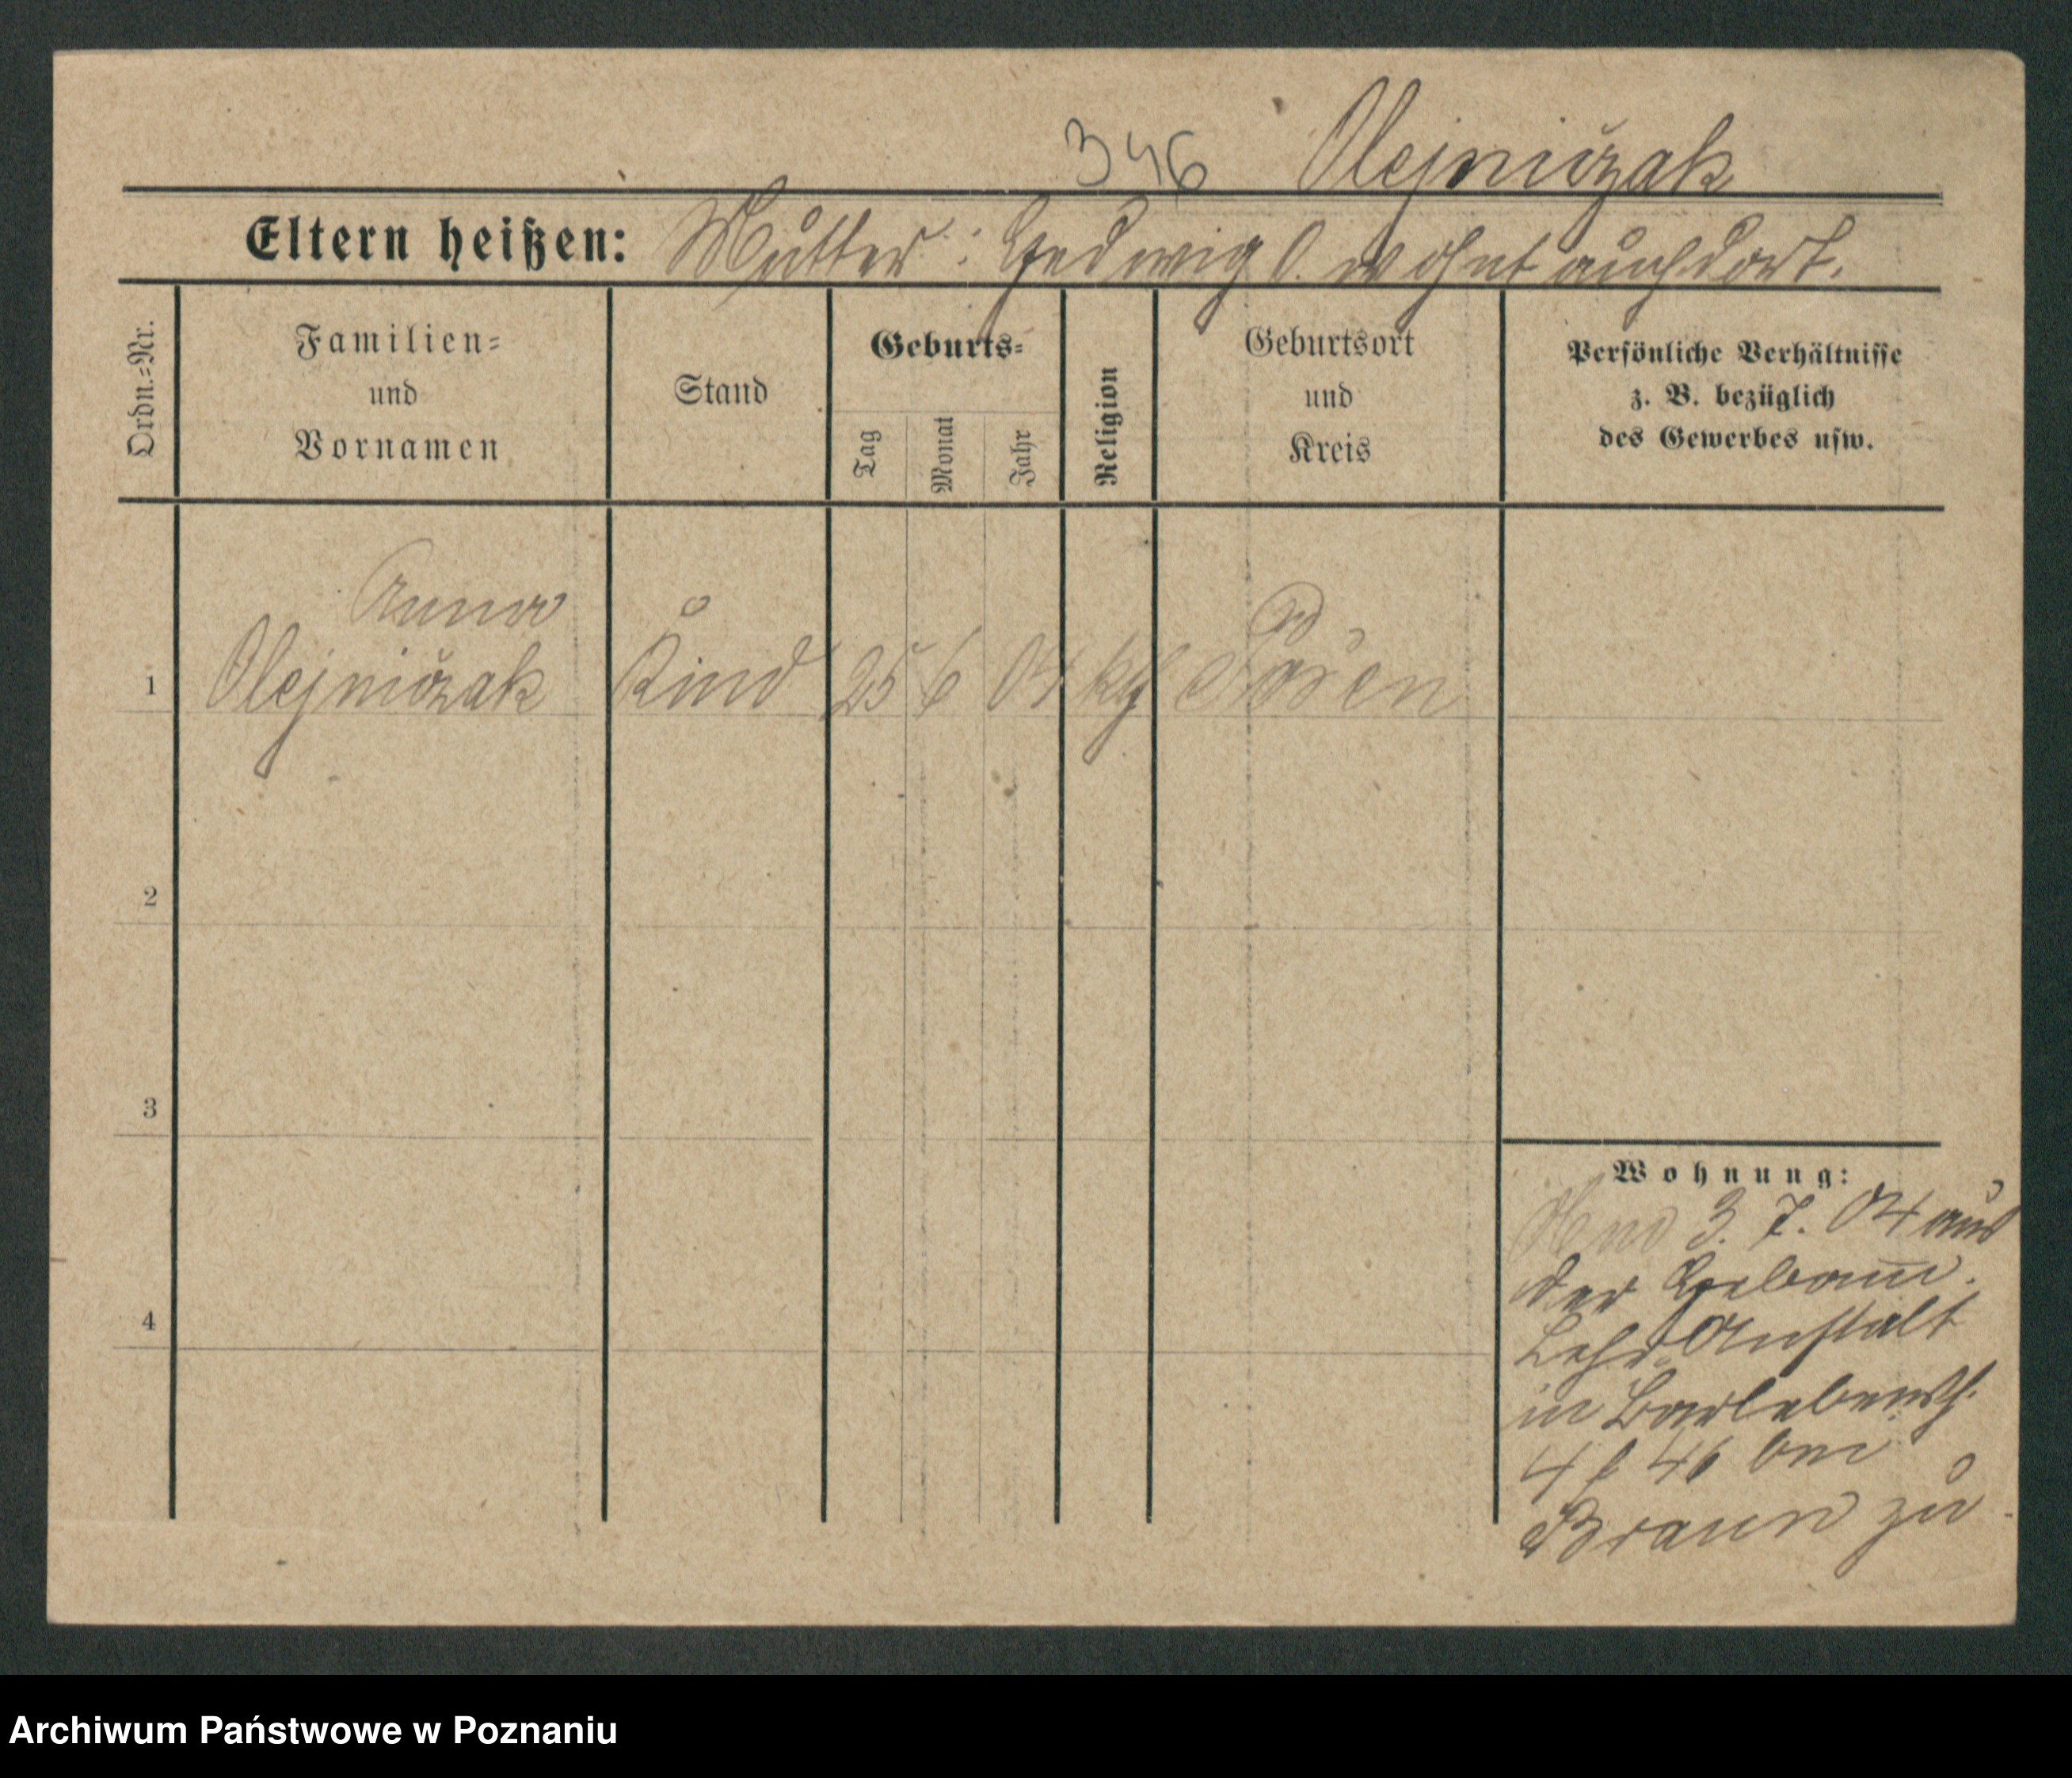 346 Olejniczak
Eltern heißen: Mutter: Hedwig O. wohnt auch dort.
Ordn.=Nr.
Familien=
und
Vornamen
Stand
Geburts=
Tag
Monat
Jahr
Religion
Geburtsort
und
Kreis
Persönliche Verhältnisse
z. B. bezüglich
des Gewerbes usw.
Anna
1 Olejniczak Kind 25 6 04 kth Posen
2
3
4
Wohnung:
3. 7. 04 aus
der Hebam.
Lehr Anstalt
in
4 46 bei
Braun zu
Archiwum Państwowe w Poznaniu